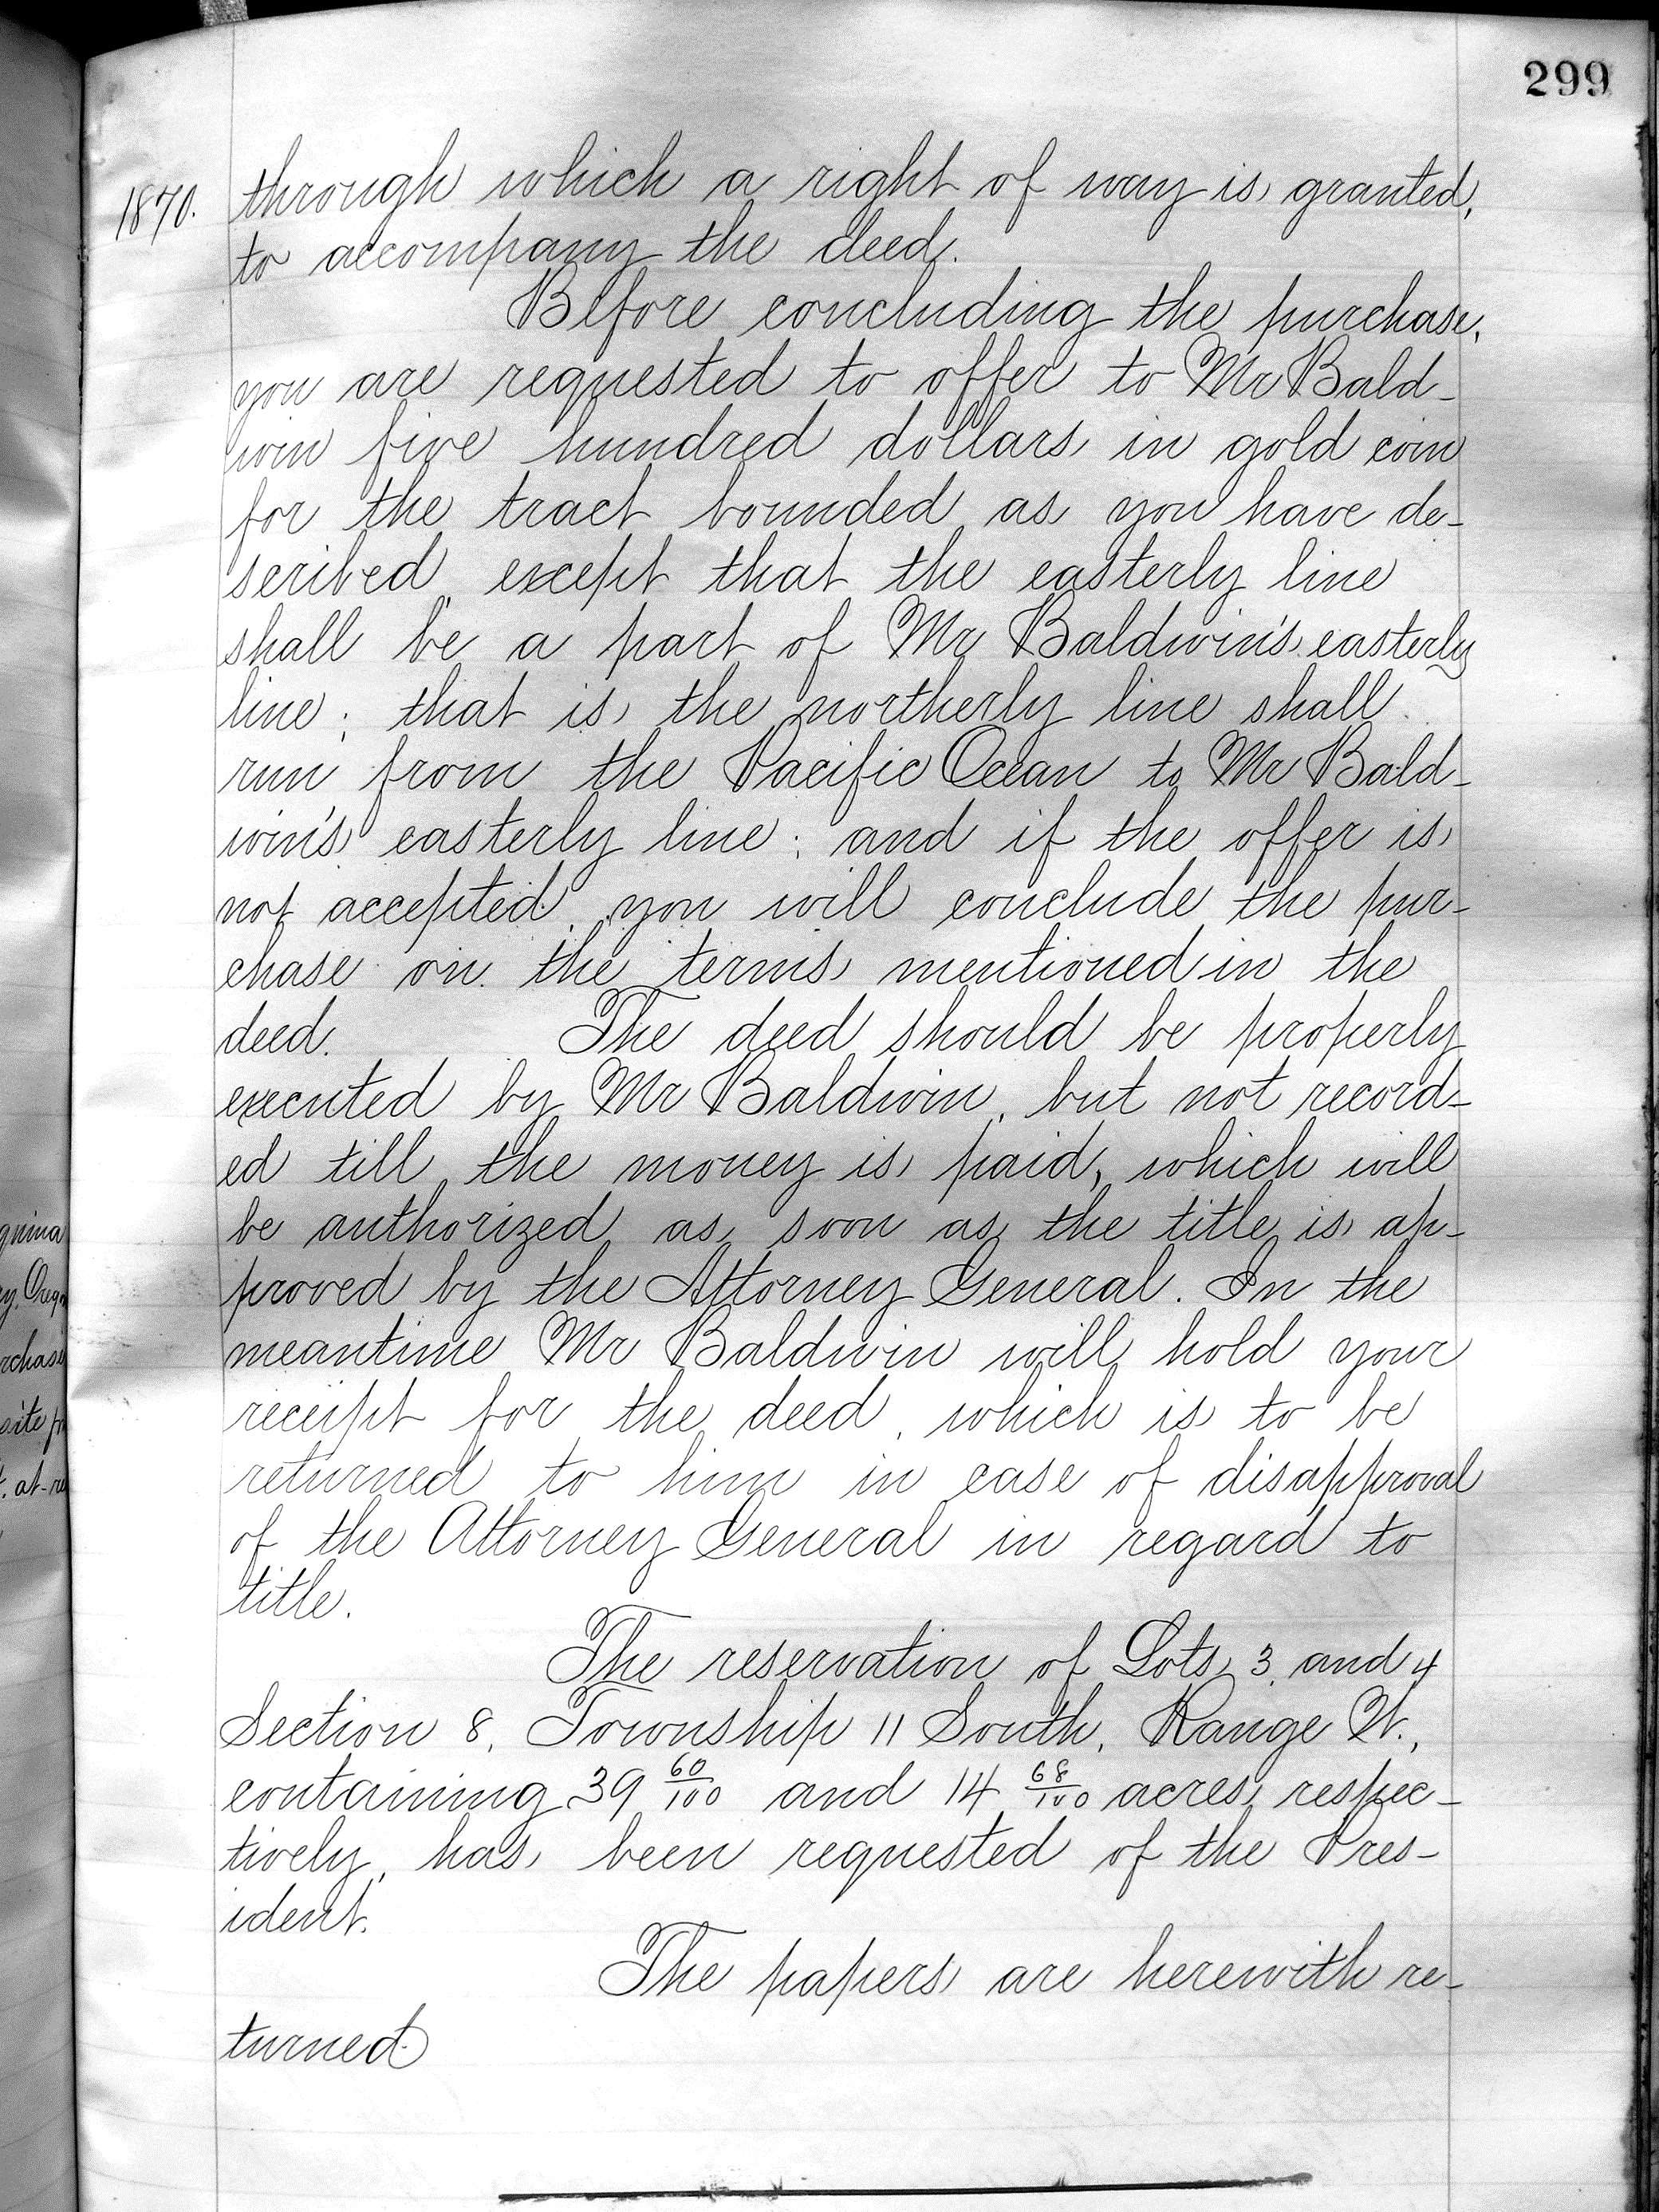 299
1870.
through which a right of way is granted,
to accompany the deed.
Before concluding the purchase,
you are requested to offer to Mr Bald-
win five hundred dollars in gold coin
for the tract bounded as you have de-
scribed, except that the easterly line
shall be a part of Mr Baldwin's easterly
line; that is, the northerly line shall
run from the Pacific Ocean to Mr Bald-
win's easterly line; and if the offer is
not accepted, you will conclude the pur-
chase on the terms mentioned in the
deed. The deed should be properly
executed by Mr Baldwin, but not record-
ed till the money is paid, which will
be authorized as soon as the title is ap-
proved by the Attorney General. In the
meantime Mr Baldwin will hold your
receipt for the deed, which is to be
returned to him in case of disapproval
of the Attorney General in regard to
title.
The reservation of Lots 3 and 4
Section 8, Township 11 South, Range W.,
containing 39 60/100 and 14 68/100 acres, respec-
tively, has been requested of the Pres-
ident.
The papers are herewith re-
turned.